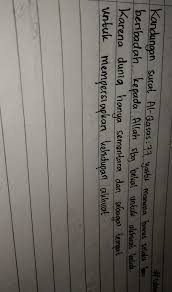 Kandungan surat Al-Qasas : 77 yaitu manusia harus selalu
beribadah kepada Allah sbg bekal untuk akhirat kelak.
Karena dunia hanya sementara dan sebagai tempat
untuk mempersiapkan kehidupan akhirat